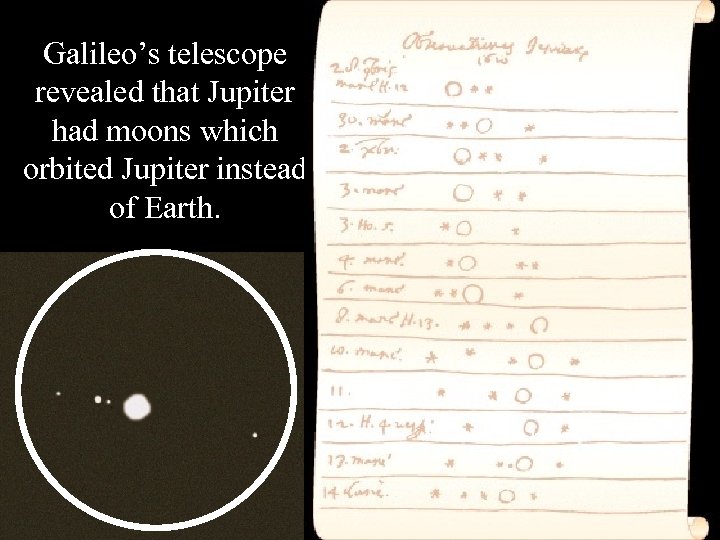 Galileo’s telescope
revealed that Jupiter
had moons which
orbited Jupiter instead
of Earth.
1610
mane H.12
30. mane
2.
3. mane
3. Ho. 5.
4. mane
6. mane
8. mane H.13.
10. mane.
11.
12. H. 4
13. mane
14